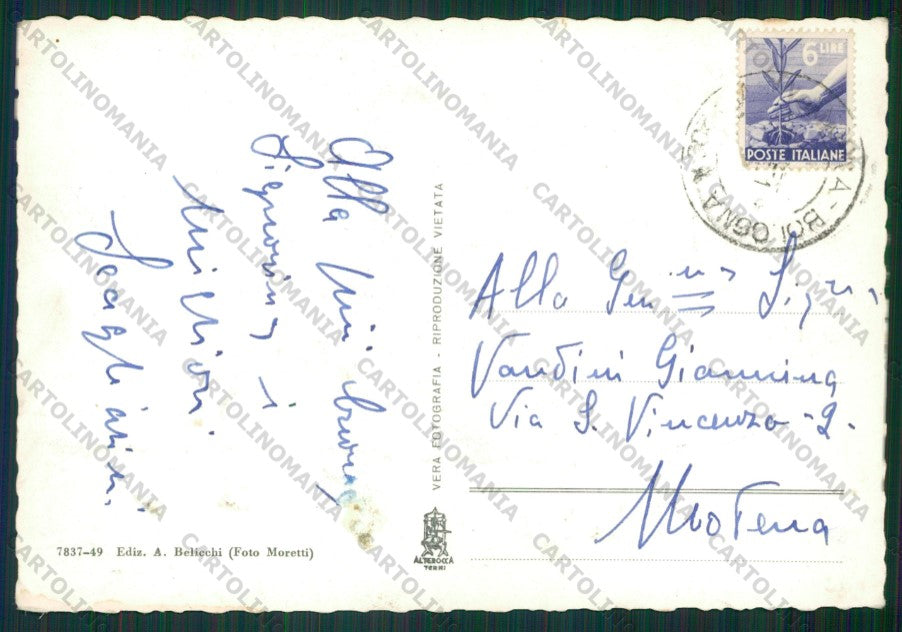 Alla mia buona
Signorina i
migliori
6 LIRE
POSTE ITALIANE
BOLOGNA
Alla Gen.ma Sign.
Vandini Giannina
Via S. Vincenzo - 2.
Modena
VERA FOTOGRAFIA - RIPRODUZIONE VIETATA
7837-49 Ediz. A. Belicchi (Foto Moretti)
ALTEROCCA
TERNI
CARTOLINOMANIA